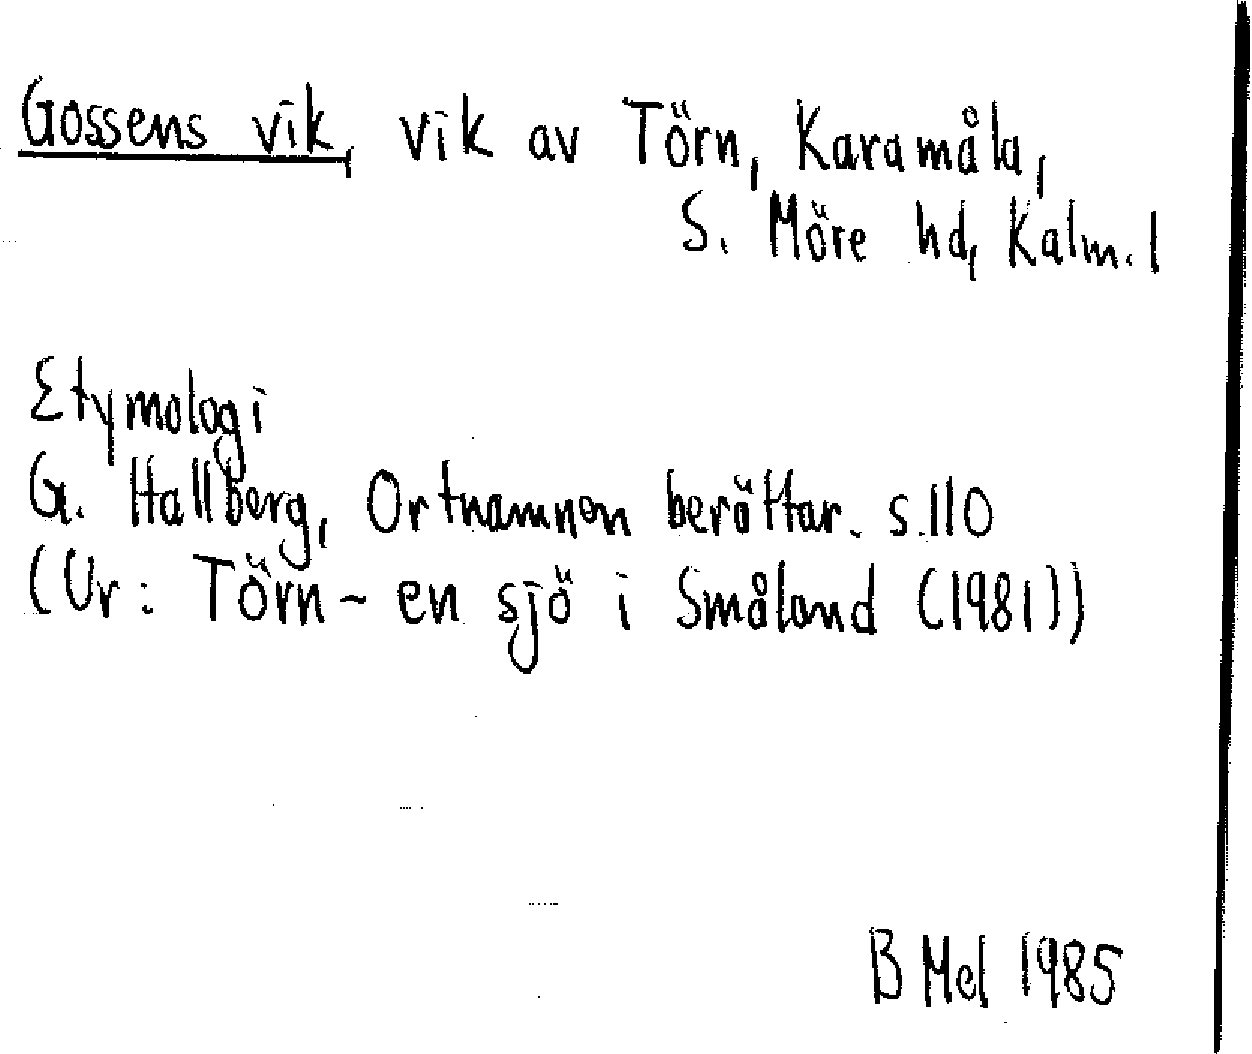 Gossens vik, vik av Törn, Karamåla,
S. Möre hd, Kalm. l
Etymologi
G. Hallberg, Ortnamnen berättar. s.110
(Ur: Törn - en sjö i Småland (1981))
B Mel 1985